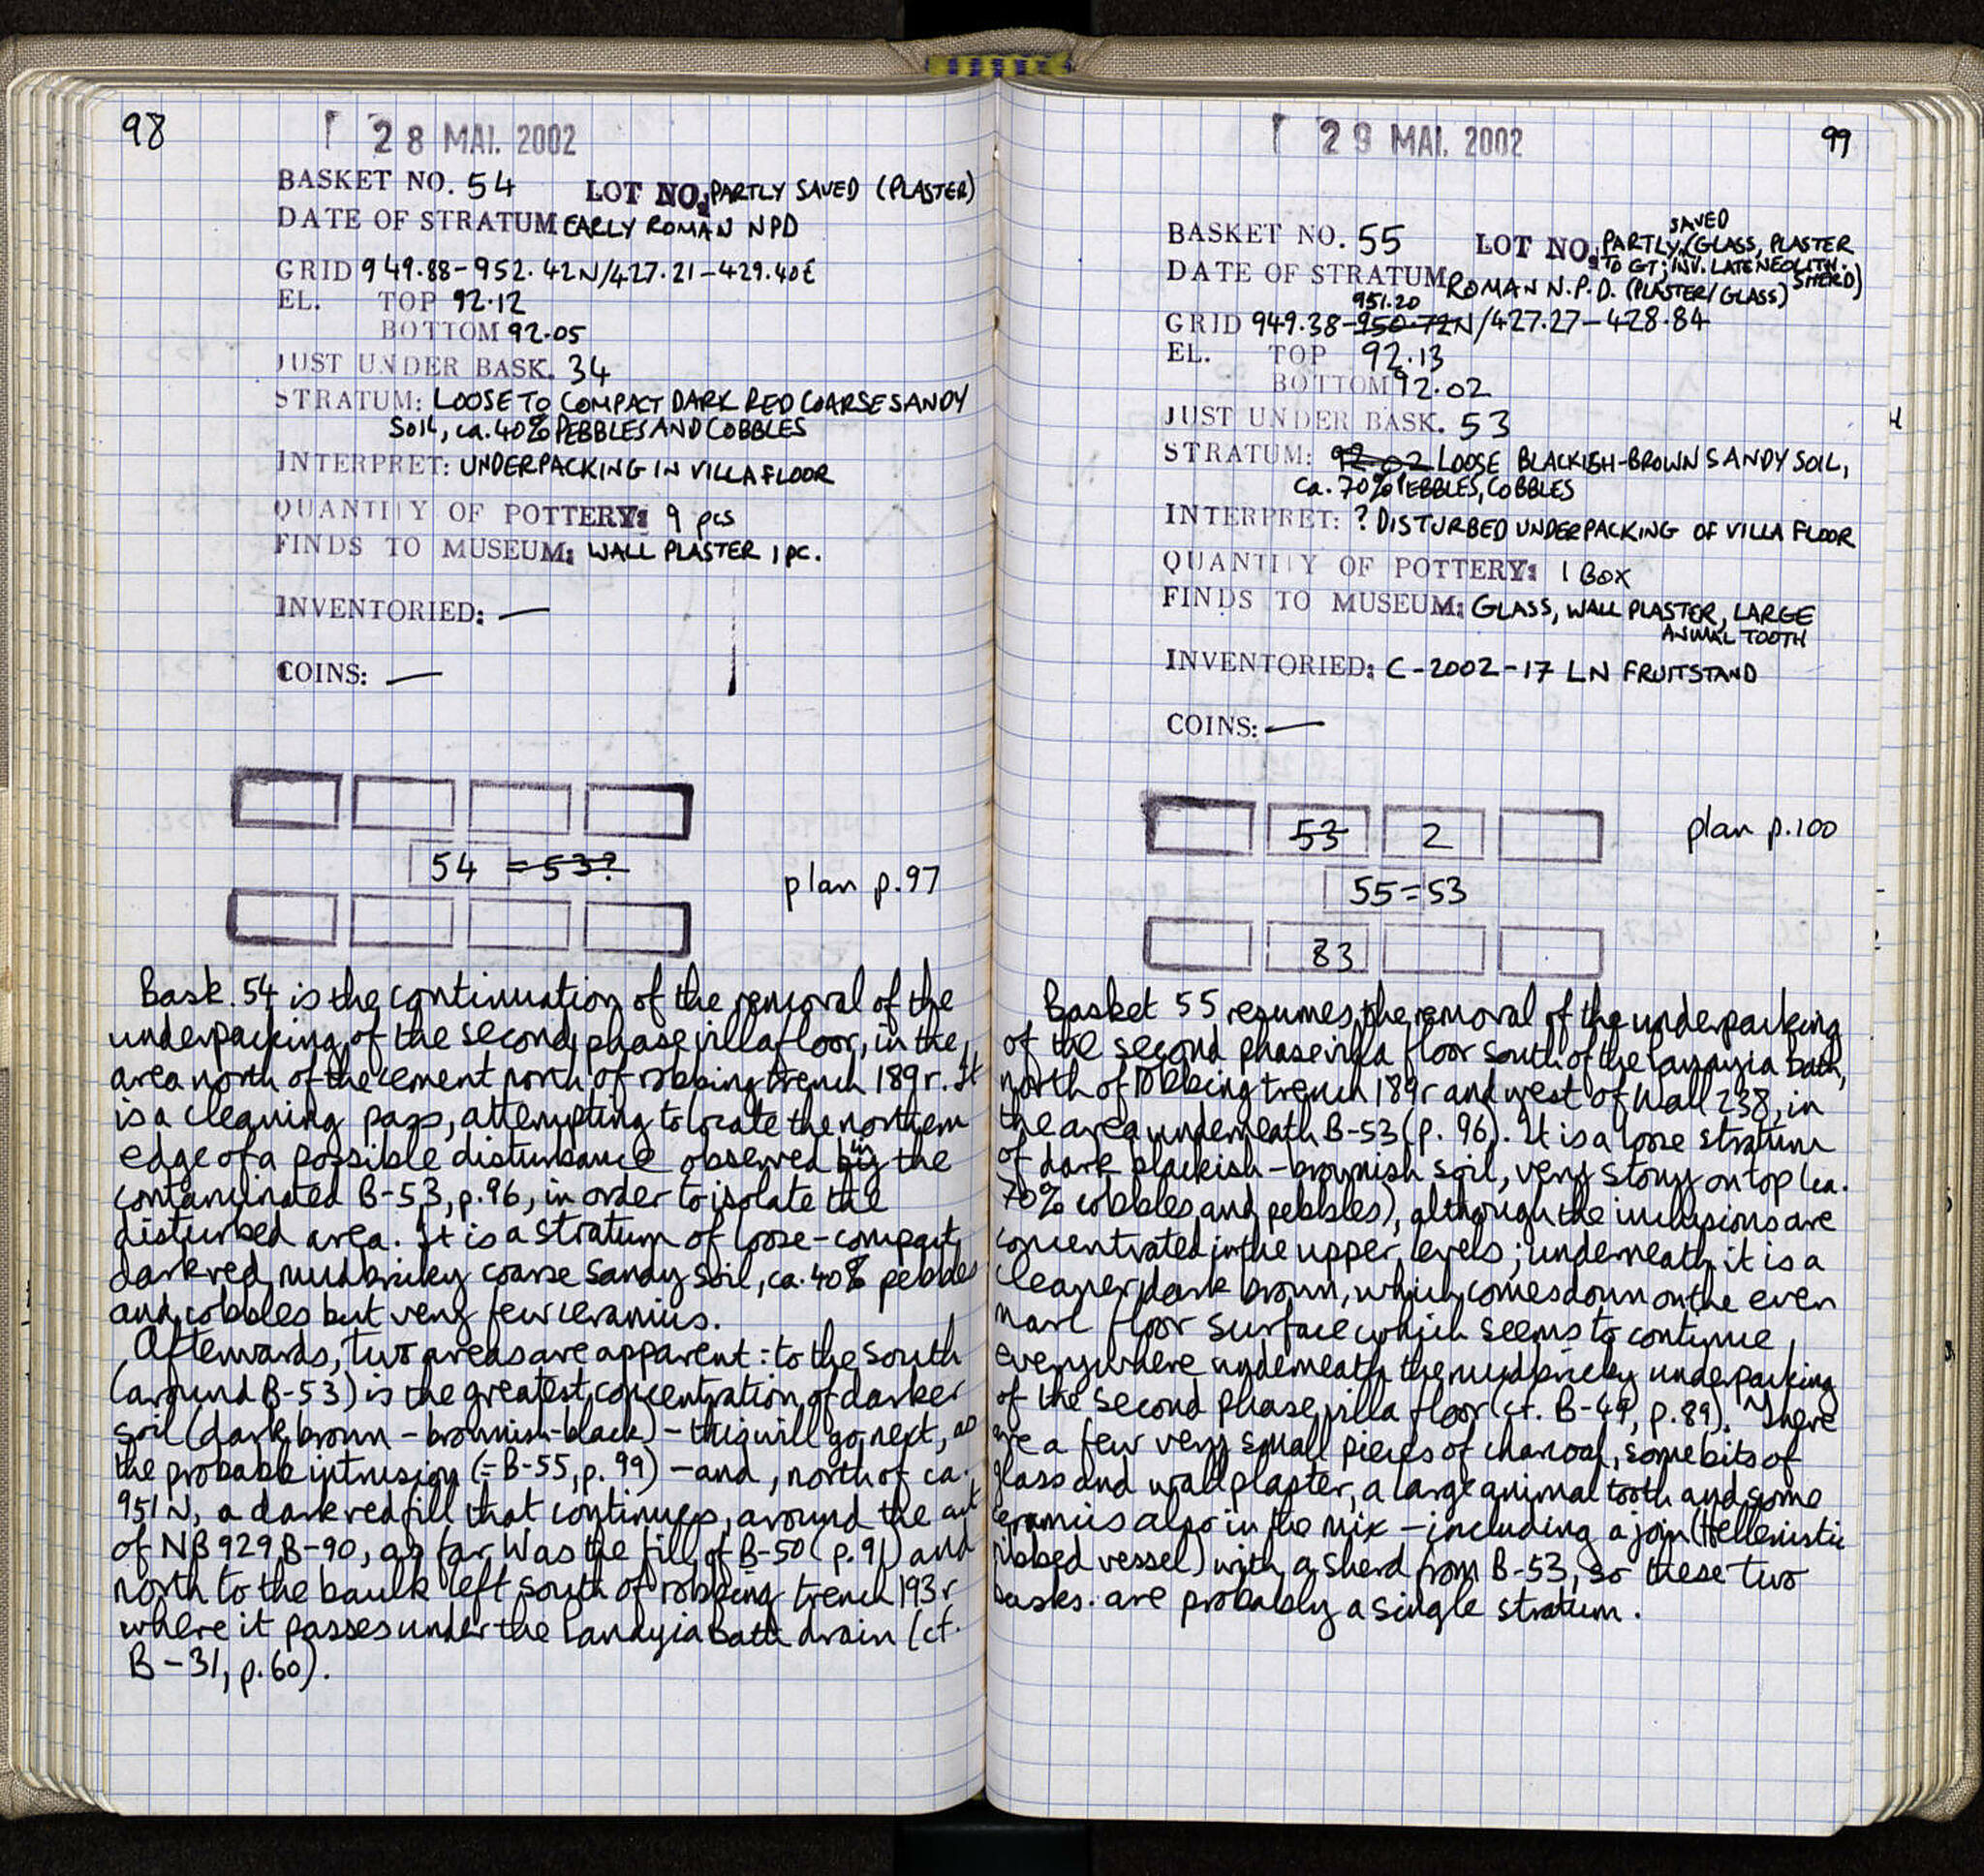 98
28 MAI. 2002
BASKET NO. 54 LOT NO. PARTLY SAVED (PLASTER)
DATE OF STRATUM EARLY ROMAN NPD
GRID 949.88-952.42N/427.21-429.40E
EL. TOP 92.12
BOTTOM 92.05
JUST UNDER BASK. 34
STRATUM: LOOSE TO COMPACT DARK RED COARSE SANDY
SOIL, ca. 40% PEBBLES AND COBBLES
INTERPRET: UNDERPACKING IN VILLA FLOOR
QUANTITY OF POTTERY: 9 pcs
FINDS TO MUSEUM: WALL PLASTER 1 PC.
INVENTORIED: —
COINS: —
54 = 53?
plan p.97
Bask. 54 is the continuation of the removal of the
underpacking of the second phase villa floor, in the
area north of the cement north of robbing trench 189r. It
is a cleaning pass, attempting to locate the northern
edge of a possible disturbance observed in the
contaminated B-53, p.96, in order to isolate the
disturbed area. It is a stratum of loose-compact
dark red mudbricky coarse sandy soil, ca. 40% pebbles
and cobbles but very few ceramics.
Afterwards, two areas are apparent: to the south
(around B-53) is the greatest concentration of darker
soil (dark brown - brownish-black) - this will go next, as
the probable intrusion (=B-55, p.99) - and, north of ca.
951N, a dark red fill that continues, around the cut
of NB 929 B-90, as far W as the fill of B-50 (p.91) and
north to the baulk left south of robbing trench 193r
where it passes under the Panayia Bath drain (cf.
B-31, p.60).
99
29 MAI. 2002
SAVED
BASKET NO. 55 LOT NO. PARTLY (GLASS, PLASTER
TO GT; INV. LATE NEOLITH. SHERD)
DATE OF STRATUM ROMAN N.P.D. (PLASTER/GLASS)
951.20
GRID 949.38-950.72N/427.27-428.84
EL. TOP 92.13
BOTTOM 92.02
JUST UNDER BASK. 53
STRATUM: 92.02 LOOSE BLACKISH-BROWN SANDY SOIL,
ca. 70% PEBBLES, COBBLES
INTERPRET: ? DISTURBED UNDERPACKING OF VILLA FLOOR
QUANTITY OF POTTERY: 1 BOX
FINDS TO MUSEUM: GLASS, WALL PLASTER, LARGE
ANIMAL TOOTH
INVENTORIED: C-2002-17 LN FRUITSTAND
COINS: —
53 2
plan p.100
55=53
83
Basket 55 resumes the removal of the underpacking
of the second phase villa floor south of the Panayia bath,
north of robbing trench 189r and west of Wall 238, in
the area underneath B-53 (p. 96). It is a loose stratum
of dark blackish-brownish soil, very stony on top (ca.
70% cobbles and pebbles), although the inclusions are
concentrated in the upper levels; underneath it is a
cleaner dark brown, which comes down on the even
marl floor surface which seems to continue
everywhere underneath the mudbricky underpacking
of the second phase villa floor (cf. B-49, p.89). There
are a few very small pieces of charcoal, some bits of
glass and wall plaster, a large animal tooth and some
ceramics also in the mix - including a join (Hellenistic
ribbed vessel) with a sherd from B-53, so these two
basks. are probably a single stratum.